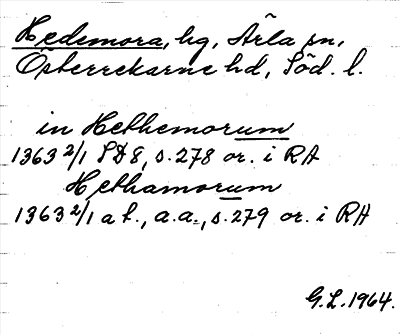 Hedemora, hg, Ärla sn,
Österrekarne hd, Söd. l.
in Hethemorum
1363 2/1 SD 8, s. 278 or. i RA
Hethamorum
1363 2/1 a f., a.a., s. 279 or. i RA
G.L. 1964.